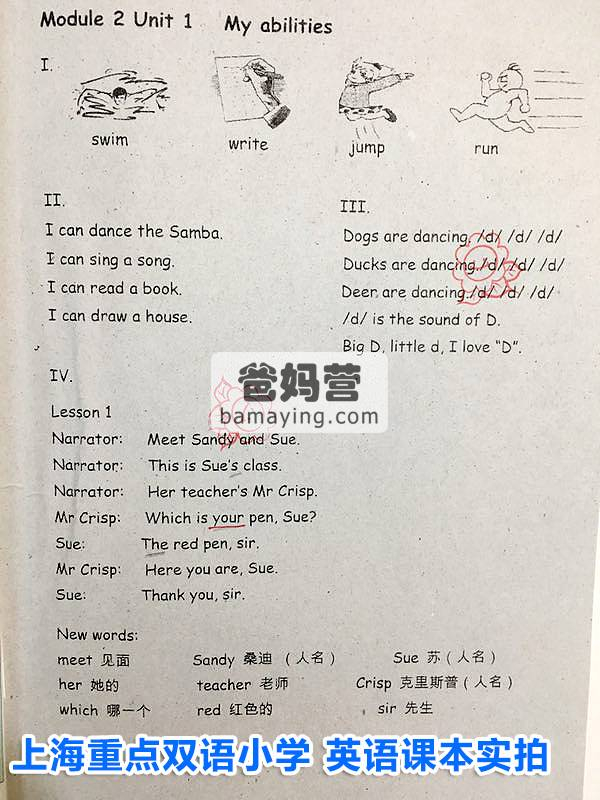 Module 2 Unit 1 My abilities
I.
swim write jump run
II.
I can dance the Samba.
I can sing a song.
I can read a book.
I can draw a house.
III.
Dogs are dancing, /d/ /d/ /d/
Ducks are dancing, /d/ /d/ /d/
Deer are dancing, /d/ /d/ /d/
/d/ is the sound of D.
Big D, little d, I love “D”.
爸妈营
bamaying.com
IV.
Lesson 1
Narrator: Meet Sandy and Sue.
Narrator: This is Sue's class.
Narrator: Her teacher's Mr Crisp.
Mr Crisp: Which is your pen, Sue?
Sue: The red pen, sir.
Mr Crisp: Here you are, Sue.
Sue: Thank you, sir.
New words:
meet 见面 Sandy 桑迪 （人名） Sue 苏（人名）
her 她的 teacher 老师 Crisp 克里斯普（人名）
which 哪一个 red 红色的 sir 先生
上海重点双语小学 英语课本实拍